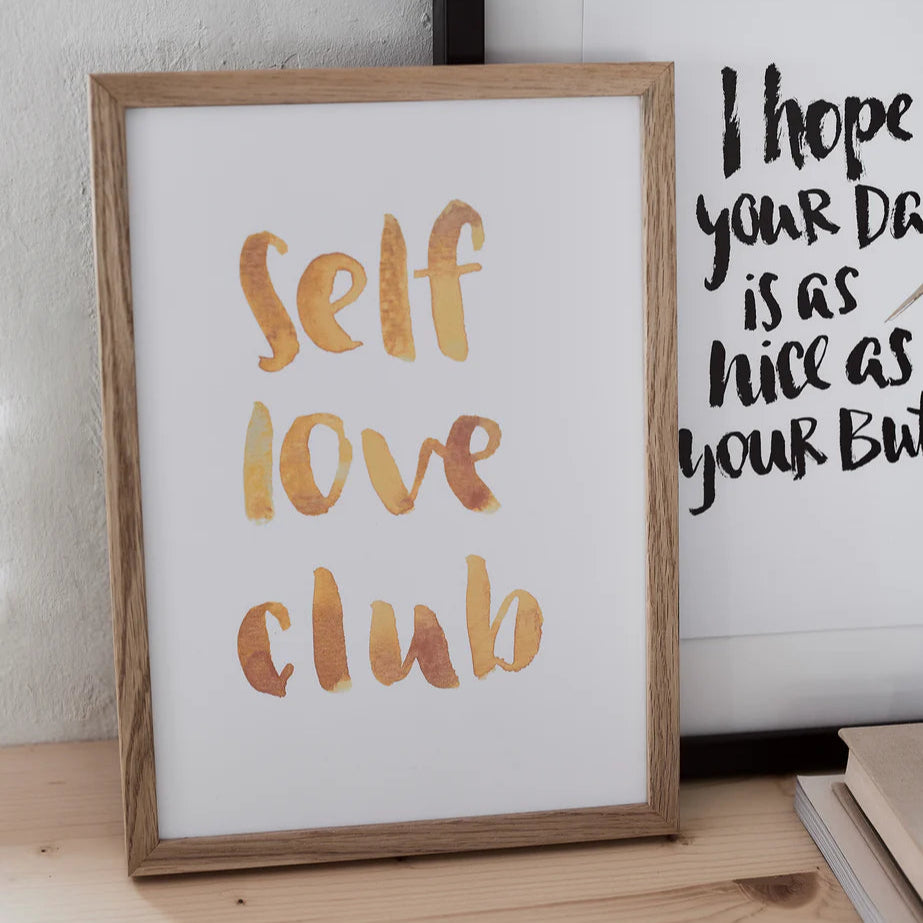 self
love
club
I hope
your Da
is as
nice as
your But